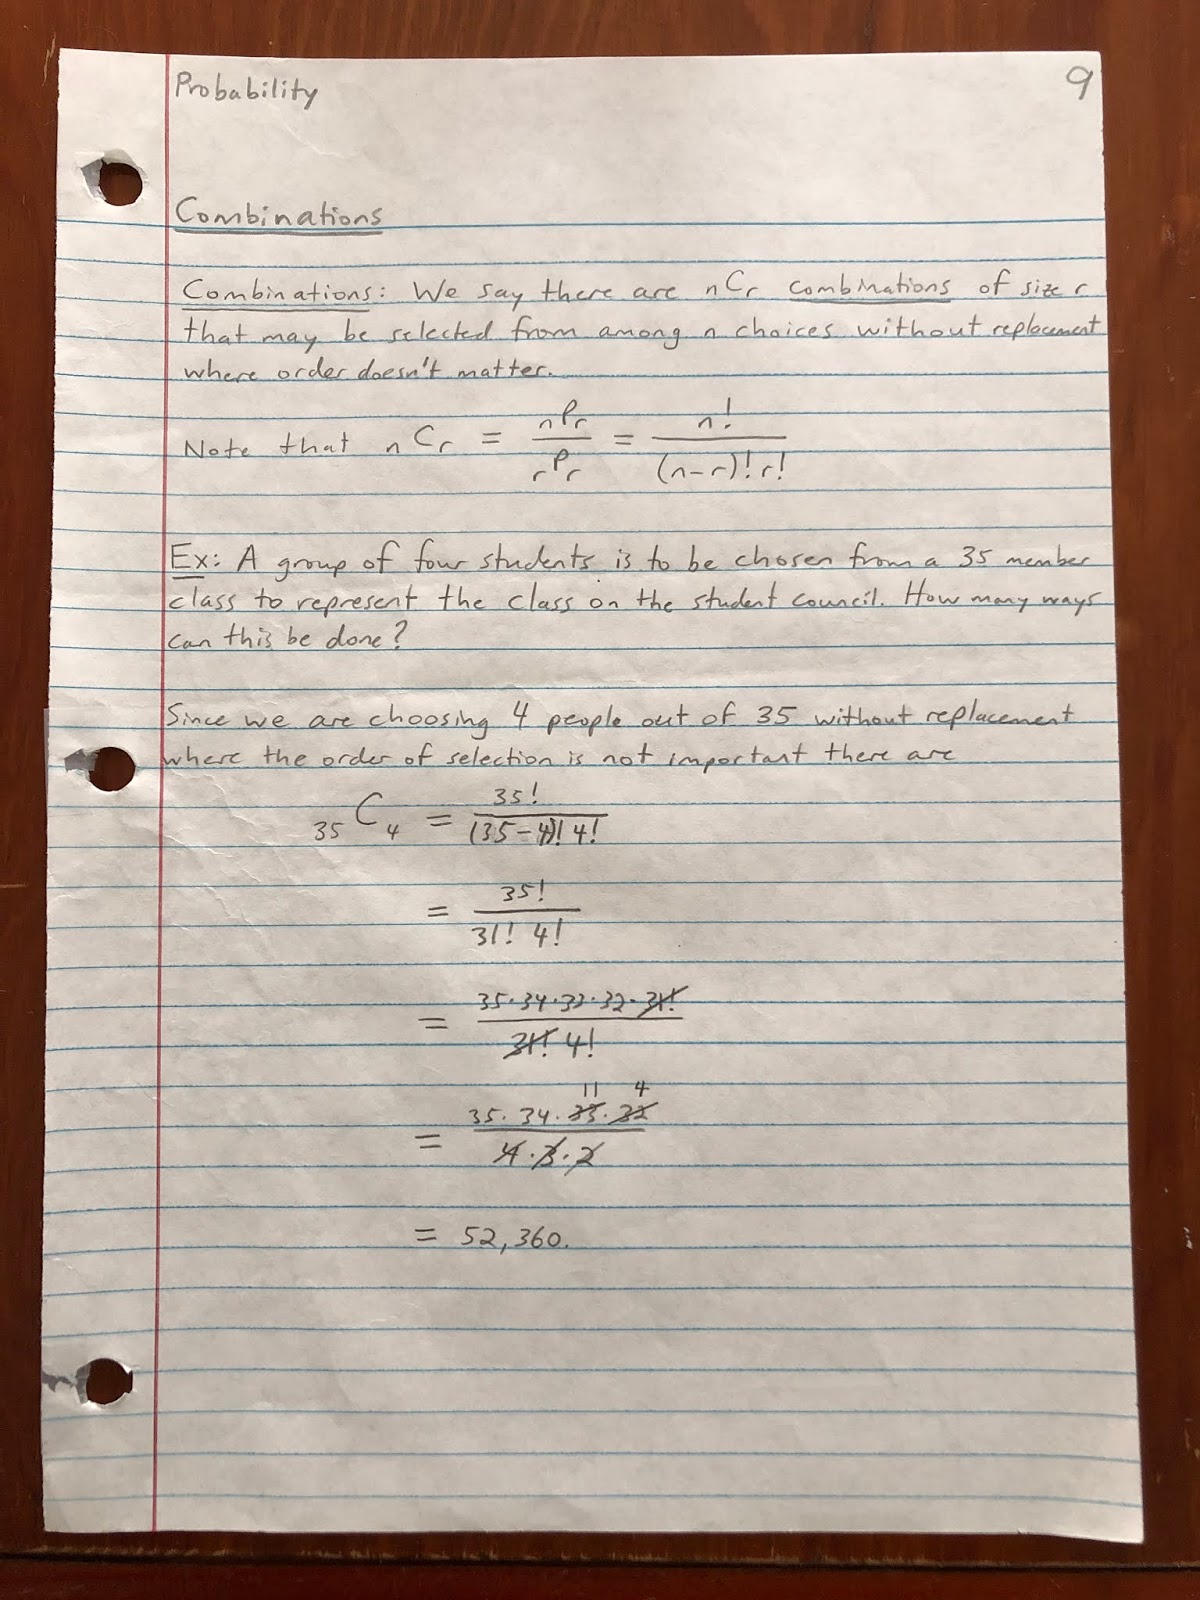 Probability 9
Combinations
Combinations: We say there are nCr combinations of size r
that may be selected from among n choices without replacement
where order doesn't matter.
Note that nCr = nPr / rPr = n! / (n-r)! r!
Ex: A group of four students is to be chosen from a 35 member
class to represent the class on the student council. How many ways
can this be done?
Since we are choosing 4 people out of 35 without replacement
where the order of selection is not important there are
35C4 = 35! / (35-4)! 4!
= 35! / 31! 4!
= 35·34·33·32·31! / 31! 4!
11 4
= 35·34·33·32 / 4·3·2
= 52,360.